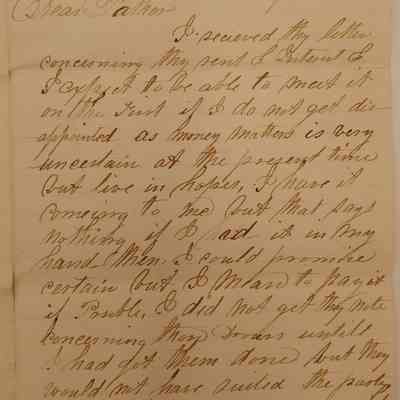 Dear Father
I recieved thy letter
concerning thy rent & Interest &
I expect to be able to meet it
on the first if I do not get dis-
appointed as money matters is very
uncertain at the present time
but live in hopes, I have it
comeing to me but that says
nothing if I had it in my
hand then I could promise
certain but I mean to pay it
if Posible, I did not get thy note
concerning them Doors untill
I had got them done but they
would not have suited the party